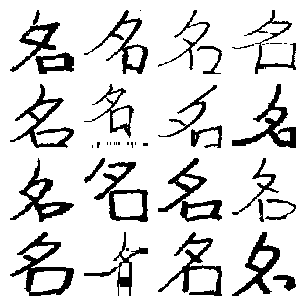 名名名名
名名名名
名名名名
名名名名